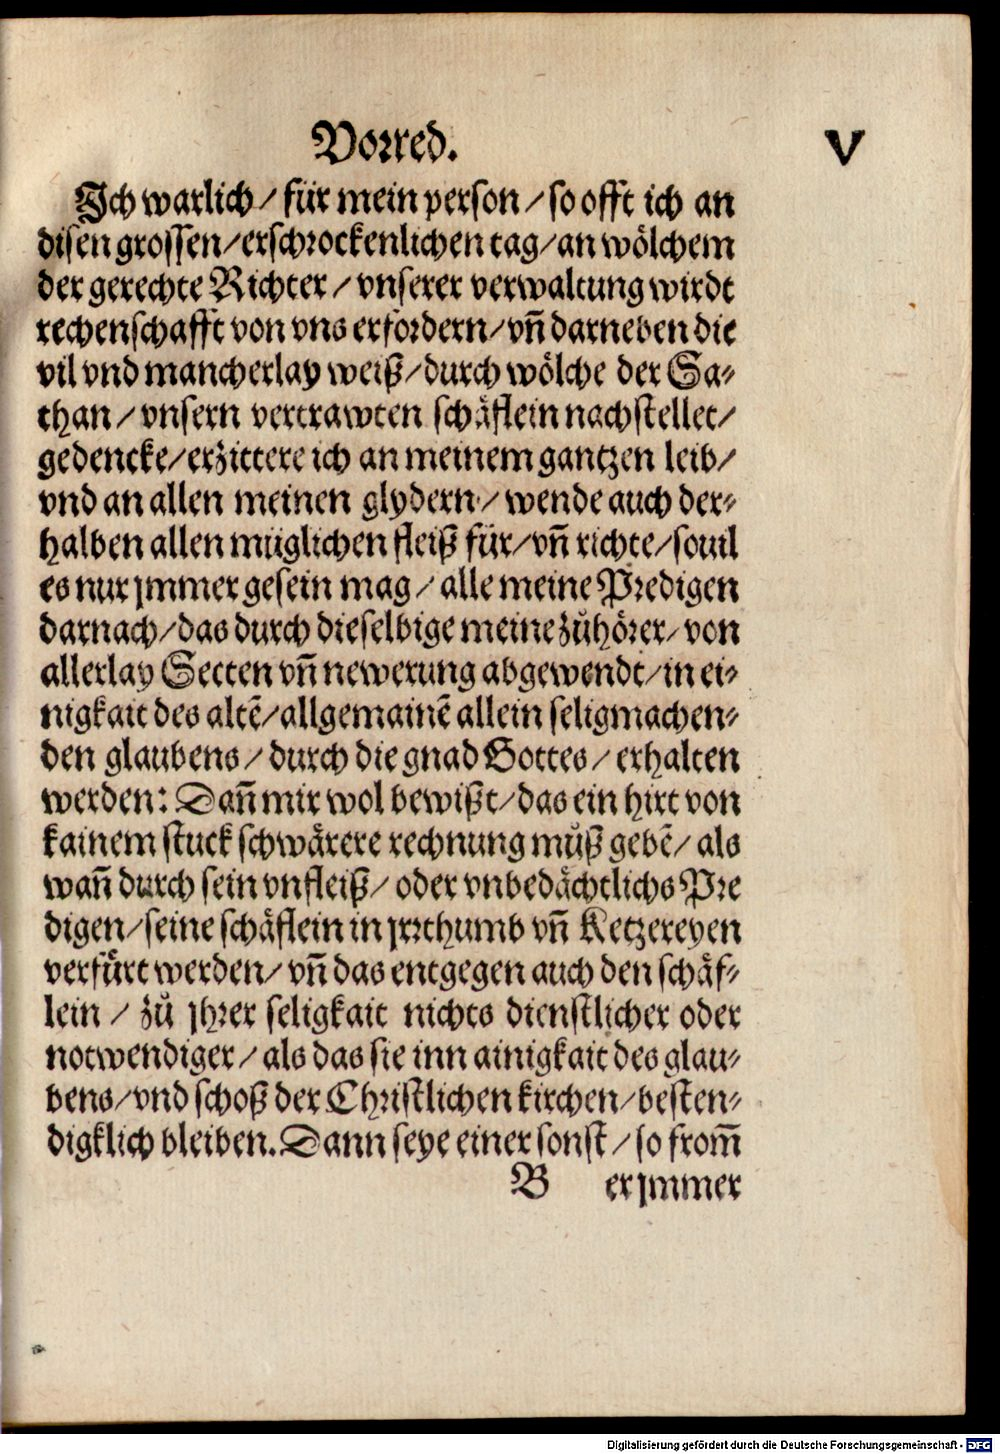 Vorred. V
Ich warlich / für mein person / so offt ich an
disen grossen / erschrockenlichen tag / an wölchem
der gerechte Richter / vnserer verwaltung wirdt
rechenschafft von vns erfordern / vñ darneben die
vil vnd mancherlay weiß / durch wölche der Sa⸗
than / vnsern vertrawten schäflein nachstellet /
gedencke / erzittere ich an meinem gantzen leib /
vnd an allen meinen glydern / wende auch der⸗
halben allen müglichen fleiß für / vñ richte / souil
es nur jmmer gesein mag / alle meine Predigen
darnach / das durch dieselbige meine zůhörer / von
allerlay Secten vñ newerung abgewendt / in ei⸗
nigkait des altẽ / allgemainẽ allein seligmachen⸗
den glaubens / durch die gnad Gottes / erhalten
werden: Dañ mir wol bewißt / das ein hirt von
kainem stuck schwärere rechnung můß gebẽ / als
wañ durch sein vnfleiß / oder vnbedächtlichs Pre
digen / seine schäflein in jrrthumb vñ Ketzereyen
verfürt werden / vñ das entgegen auch den schäf⸗
lein / zů jhrer seligkait nichts dienstlicher oder
notwendiger / als das sie inn ainigkait des glau⸗
bens / vnd schoß der Christlichen kirchen / besten⸗
digklich bleiben. Dann seye einer sonst / so from̃
B er jmmer
Digitalisierung gefördert durch die Deutsche Forschungsgemeinschaft - DFG